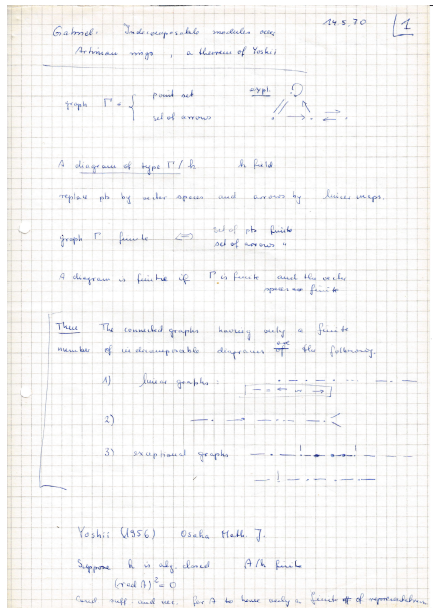 14.5.70 1
Gabriel: Indecomposable modules over
Artinian rings, a theorem of Yoshii
graph Γ = { point set expl.
set of arrows
A diagram of type Γ/k k field
replace pts by vector spaces and arrows by linear maps.
graph Γ finite ⟺ set of pts finite
set of arrows "
A diagram is finite if Γ is finite and the vector
spaces are finite
Thm The connected graphs having only a finite
number of indecomposable diagrams are the following.
1) linear graphs:
— = ← or →
2)
3) exceptional graphs
Yoshii (1956) Osaka Math J.
Suppose k is alg. closed A/k finite
(rad A)² = 0
Cond suff and nec. for A to have only a finite # of representations